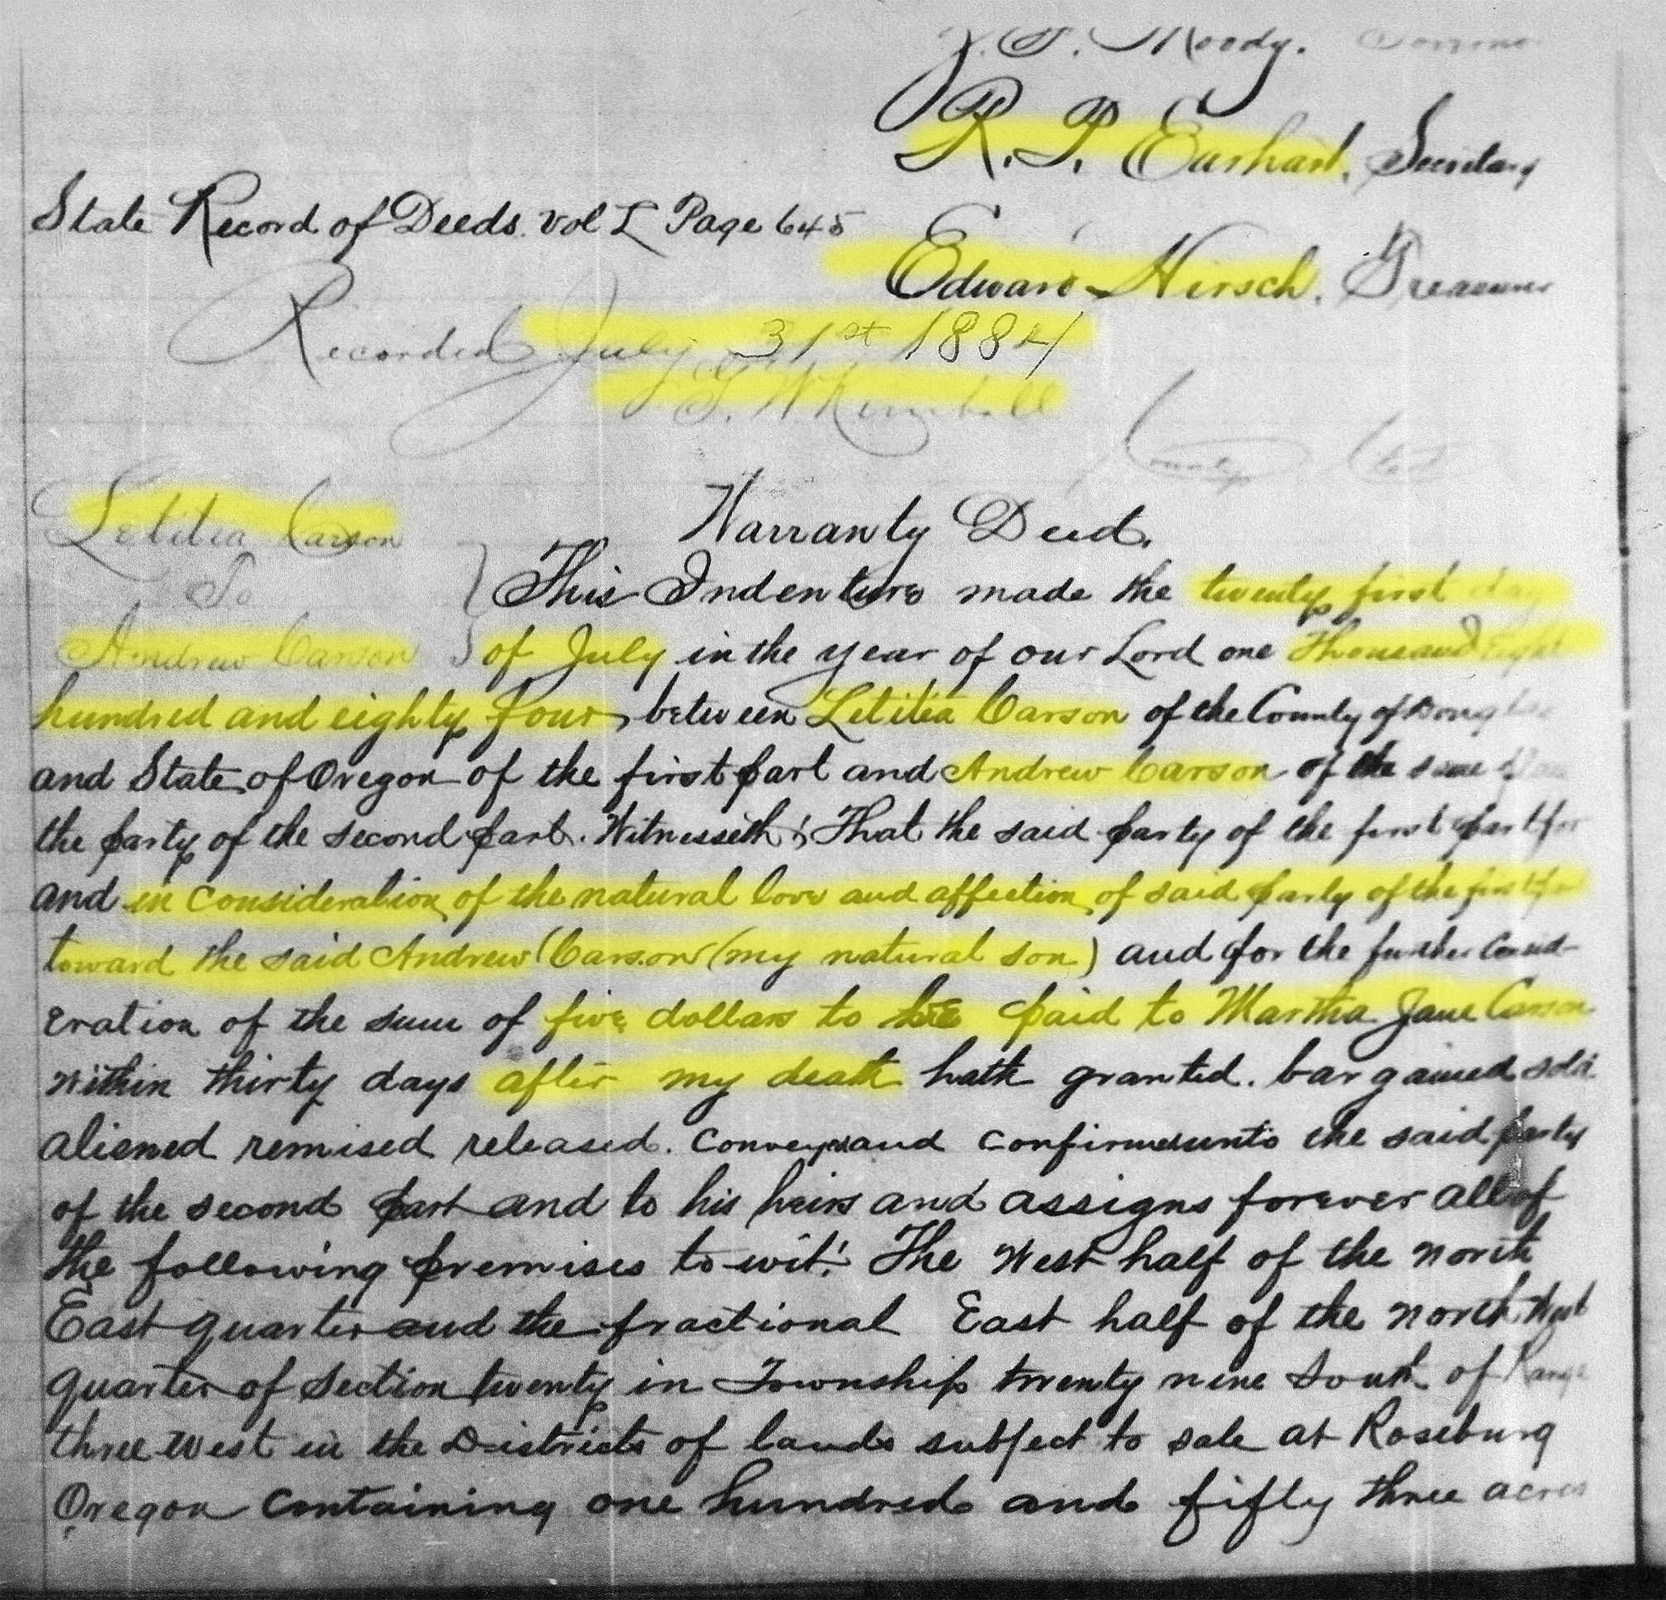 Z. F. Moody. Governor
R. P. Earhart, Secretary
State Record of Deeds. Vol L Page 645
Edward Hirsch. Treasurer
Recorded July 31st 1884
G. W. Kimball
County Clerk
Letitia Carson
To
Andrew Carson
Warranty Deed.
This Indenture made the twenty first day
of July in the year of our Lord one Thousand Eight
hundred and eighty four, between Letitia Carson of the County of Douglas
and State of Oregon of the first part and Andrew Carson of the same place
the party of the second part. Witnesseth; That the said party of the first part for
and in consideration of the natural love and affection of said party of the first part
toward the said Andrew Carson (my natural son) and for the further Consid-
eration of the sum of five dollars to be paid to Martha Jane Carson
within thirty days after my death hath granted. bargained sold
aliened remised released. Conveys and Confirms unto the said party
of the second part and to his heirs and assigns forever all of
the following premises to-wit: The West half of the North
East quarter and the fractional East half of the North West
quarter of Section twenty in Township twenty nine South of Range
three West in the Districts of lands subject to sale at Roseburg
Oregon Containing one hundred and fifty three acres